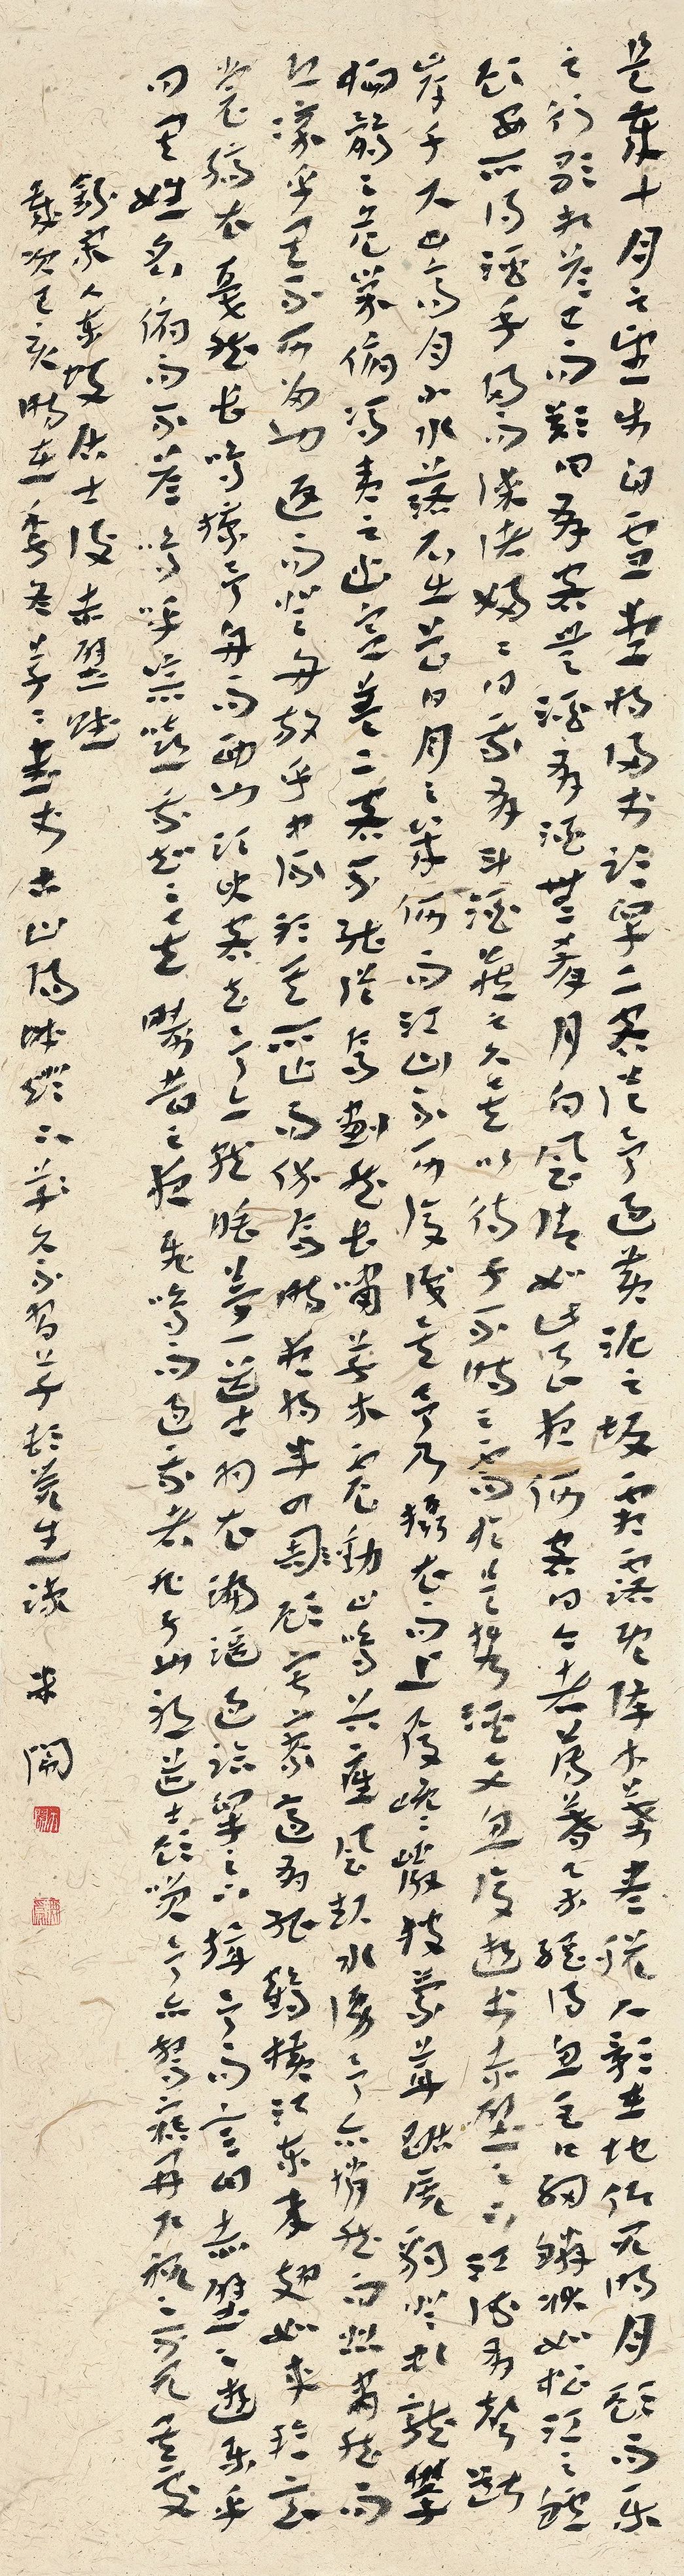 是歲十月之望步自雪堂將歸於臨皋二客從予過黃泥之坂霜露既降木葉盡脫人影在地仰見明月顧而樂
之行歌相答已而歎曰有客無酒有酒無肴月白風清如此良夜何客曰今者薄暮舉網得魚巨口細鱗狀如松江之鱸
顧安所得酒乎歸而謀諸婦婦曰我有斗酒藏之久矣以待子不時之需於是攜酒與魚復遊於赤壁之下江流有聲斷
岸千尺山高月小水落石出曾日月之幾何而江山不可復識矣予乃攝衣而上履巉巖披蒙茸踞虎豹登虬龍攀
栖鶻之危巢俯馮夷之幽宮蓋二客不能從焉劃然長嘯草木震動山鳴谷應風起水湧予亦悄然而悲肅然而
恐凜乎其不可留也返而登舟放乎中流聽其所止而休焉時夜將半四顧寂寥適有孤鶴橫江東來翅如車輪玄
裳縞衣戛然長鳴掠予舟而西也須臾客去予亦就睡夢一道士羽衣蹁躚過臨皋之下揖予而言曰赤壁之遊樂乎
問其姓名俯而不答嗚呼噫嘻我知之矣疇昔之夜飛鳴而過我者非子也耶道士顧笑予亦驚寤開戶視之不見其處
錄宋人東坡居士後赤壁賦
歲次己亥時在季冬草草書於古山陽城燈下久不習草頗覺生澀 朱開